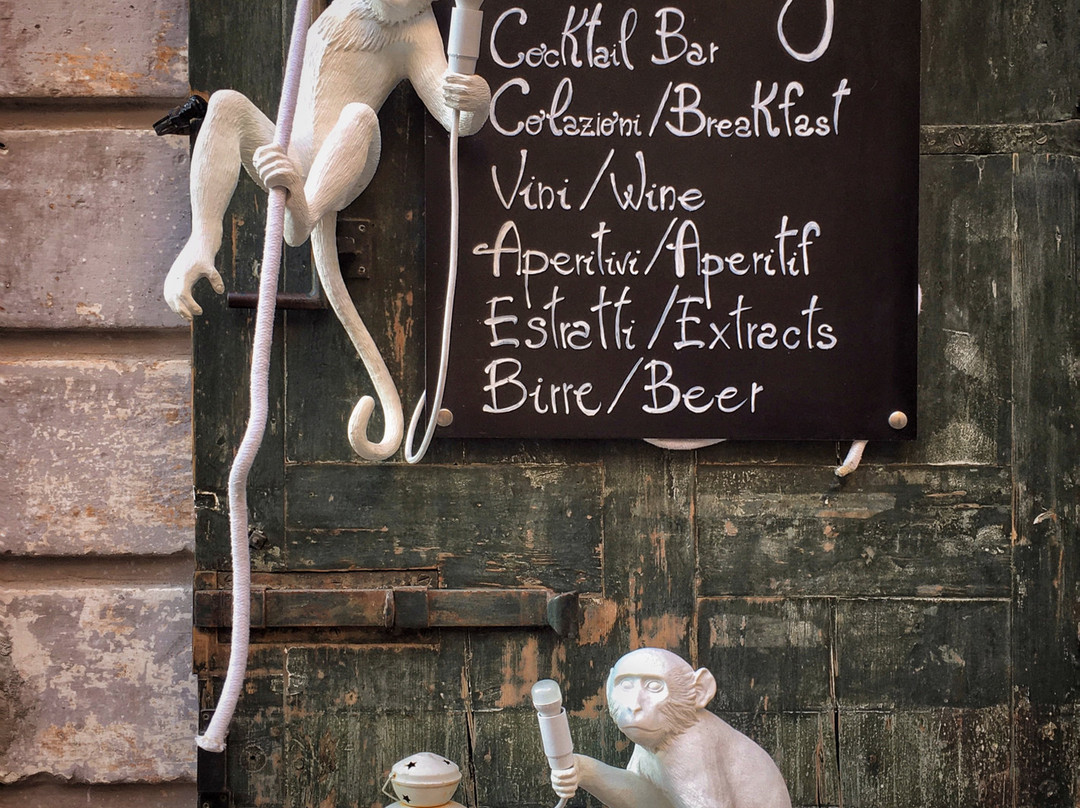 Cocktail Bar
Colazioni/Breakfast
Vini/Wine
Aperitivi/Aperitif
Estratti/Extracts
Birre/Beer